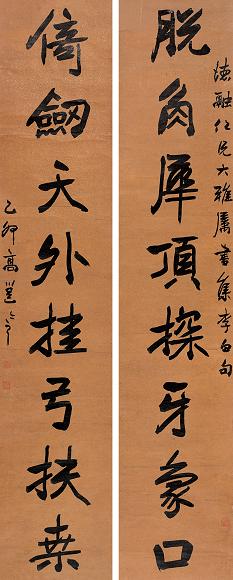 脫角犀頂探牙象口
德融仁兄大雅屬書集李白句
倚劒天外挂弓扶桒
乙卯高邕